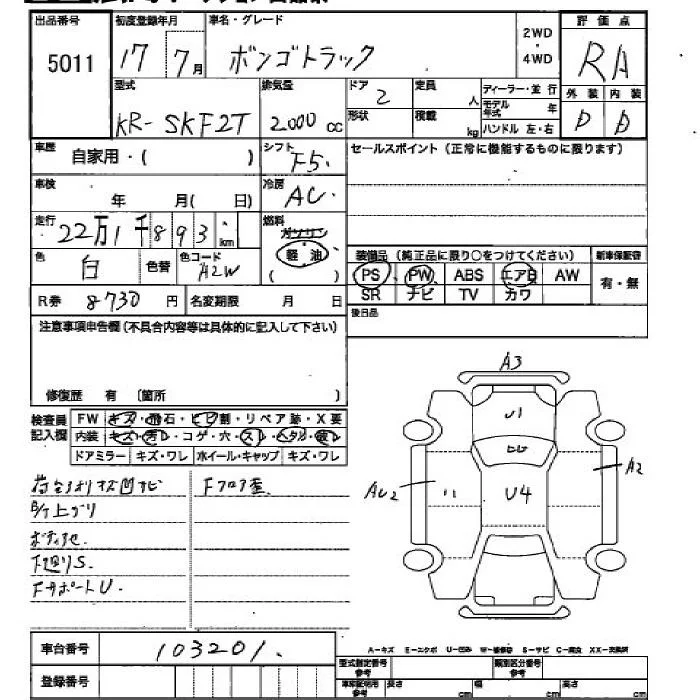 出品番号
5011
初度登録年月
17 7月
車名・グレード
ボンゴトラック
2WD
・
4WD
評価点
RA
型式
KR- SKF2T
排気量
2000 cc
ドア
2
形状
定員
人
積載
kg
ディーラー・並行
モデル年式 年
ハンドル 左・右
外装 内装
D D
車歴
自家用・( )
シフト
F5
セールスポイント(正常に機能するものに限ります)
車検
年 月( 日)
冷房
AC
走行
22万1千893km
燃料
ガソリン
軽油
( )
色
白
色替
色コード
A2W
装備品(純正品に限り○をつけてください)
新車保証書
PS PW ABS エアB AW
SR ナビ TV カワ
有・無
R券 8730 円
名変期限 月 日
後日品
注意事項申告欄(不具合内容等は具体的に記入して下さい)
修復歴 有 〔箇所 〕
検査員記入欄
FW キズ・飛石・ヒビ割・リペア跡・X要
内装 キズ・汚レ・コゲ・穴・スレ・ヘタリ・破レ
ドアミラー キズ・ワレ ホイール・キャップ キズ・ワレ
F フロア歪
上ゲリ
下廻りS.
FサポートU.
A3
U1
U4
A2
AU2
車台番号
103201
登録番号
A-キズ E-エクボ U-凹み W-補修巻 S-サビ C-腐食 XX-交換済
型式指定番号
参考
類別区分番号
参考
車庫証明用
参考
長さ cm
幅 cm
高さ cm